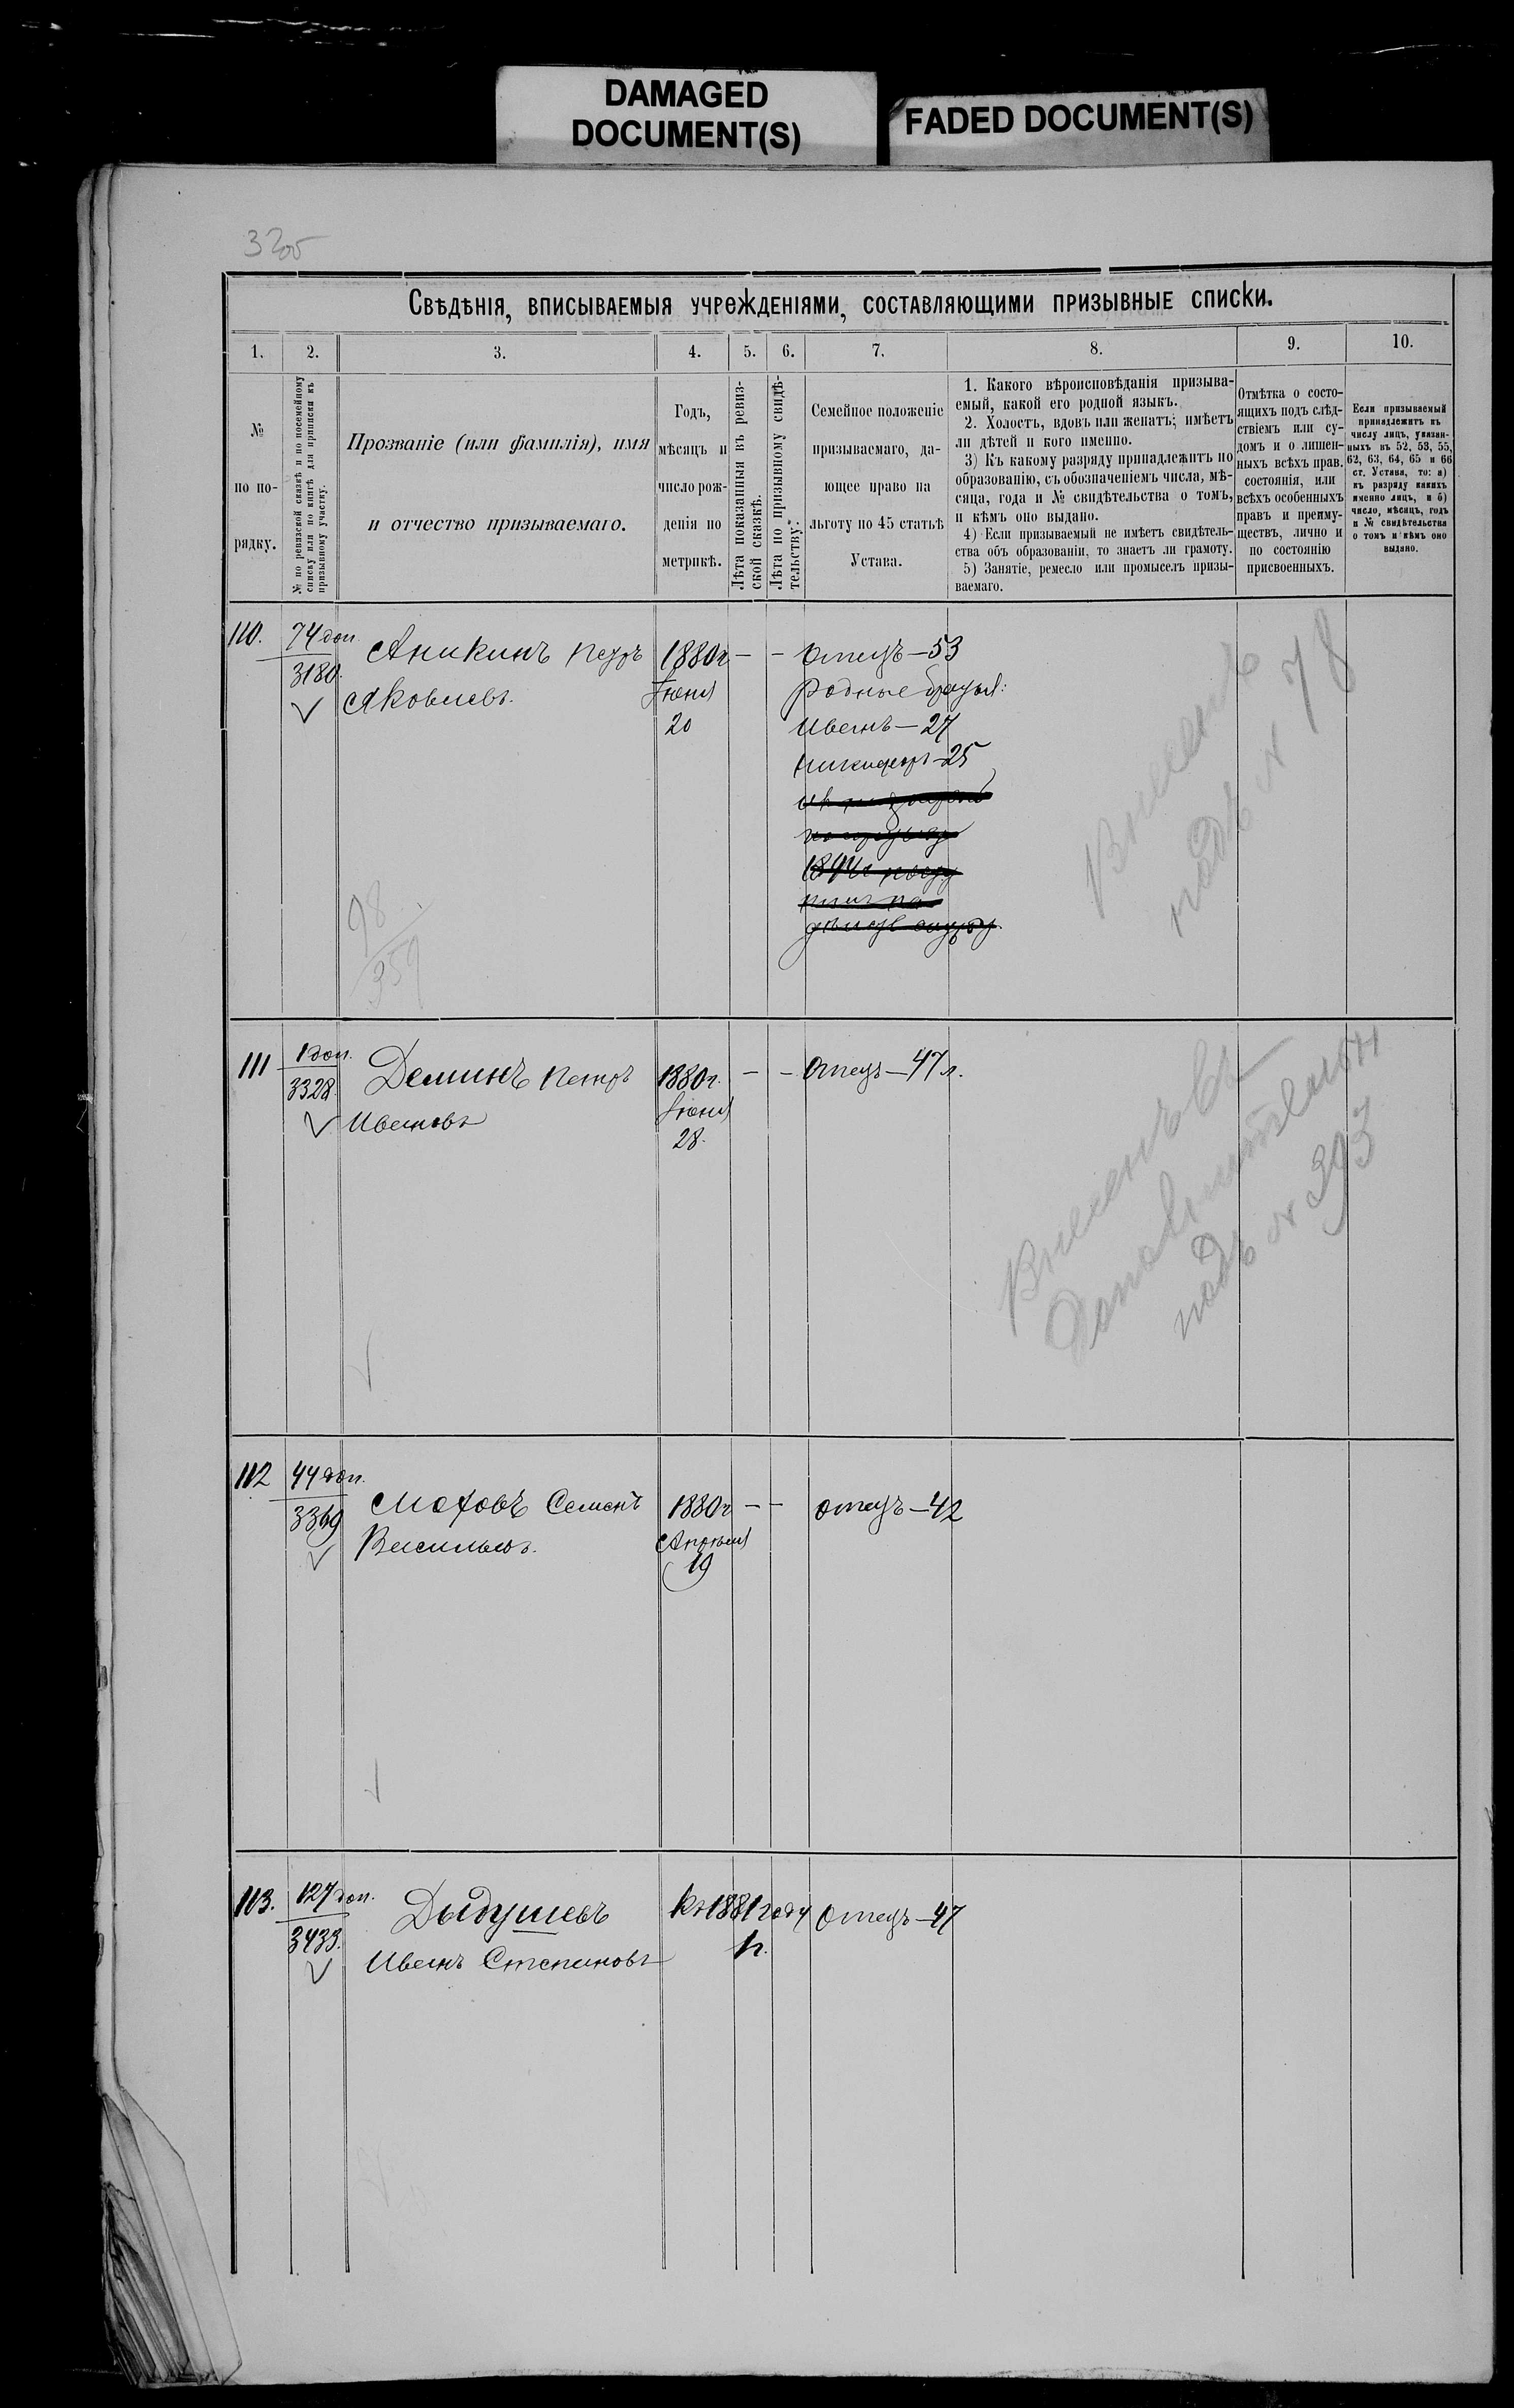 DAMAGED
DOCUMENT(S)
FADED DOCUMENT(S)
32об
Свѣдѣнія, вписываемыя учрежденіями, составляющими призывные списки.
1. 2. 3. 4. 5. 6. 7. 8. 9. 10.
№
по по-
рядку.
№ по ревизской сказкѣ и по посемейному
списку или по книгѣ для приписки къ
призывному участку.
Прозваніе (или фамилія), имя
и отчество призываемаго.
Годъ,
мѣсяцъ и
число рож-
денія по
метрикѣ.
Лѣта показанныя въ ревиз-
ской сказкѣ.
Лѣта по призывному свидѣ-
тельству.
Семейное положеніе
призываемаго, да-
ющее право на
льготу по 45 статьѣ
Устава.
1. Какого вѣроисповѣданія призыва-
емый, какой его родной языкъ.
2. Холостъ, вдовъ или женатъ; имѣетъ
ли дѣтей и кого именно.
3) Къ какому разряду принадлежитъ по
образованію, съ обозначеніемъ числа, мѣ-
сяца, года и № свидѣтельства о томъ,
и кѣмъ оно выдано.
4) Если призываемый не имѣетъ свидѣтель-
ства объ образованіи, то знаетъ ли грамоту.
5) Занятіе, ремесло или промыселъ призы-
ваемаго.
Отмѣтка о состо-
ящихъ подъ слѣд-
ствіемъ или су-
домъ и о лишен-
ныхъ всѣхъ прав.
состоянія, или
всѣхъ особенныхъ
правъ и преиму-
ществъ, лично и
по состоянію
присвоенныхъ.
Если призываемый
принадлежитъ къ
числу лицъ, указан-
ныхъ въ 52, 53, 55,
62, 63, 64, 65 и 66
ст. Устава, то: а)
къ разряду какихъ
именно лицъ, и б)
число, мѣсяцъ, годъ
и № свидѣтельства
о томъ и кѣмъ оно
выдано.
110. 74 доп. Аникинъ Петръ 1880г — — Отецъ — 53
3180. Яковлевъ. Іюня Родные братья:
20 Иванъ — 27
Никифоръ — 25
Внесенъ
подъ № 78
98
359
111 1 доп. Деминъ Петръ 1880г. — — Отецъ — 47 л.
3328. Ивановъ Іюня
28.
Внесенъ въ
дополнительн
подъ № 393
112 44 доп. Моховъ Семенъ 1880г — — Отецъ — 42
3369 Васильевъ. Апрѣля
19
113. 127 доп. Дыдушевъ Къ 1881 году Отецъ — 47
3433. Иванъ Степановъ 1 г.